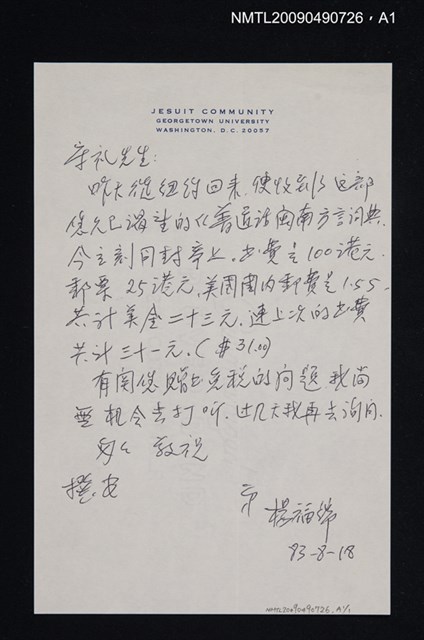 NMTL20090490726，A1
JESUIT COMMUNITY
GEORGETOWN UNIVERSITY
WASHINGTON, D.C. 20057
守礼先生：
昨天從紐約回来，便收到了这部
您久已渴望的《普通话闽南方言詞典》
今立刻同封寄上。书費是100港元
郵票25港元，美國國内郵費是1.55，
共计美金二十三元，連上次的书費
共计三十一元。($31.00)
有関您贈书免税的问題我尚
無机会去打听，过几天我再去询问。
匆匆 敬祝
撰安
弟 楊福绵
83-8-18
NMTL20090490726, A1/1